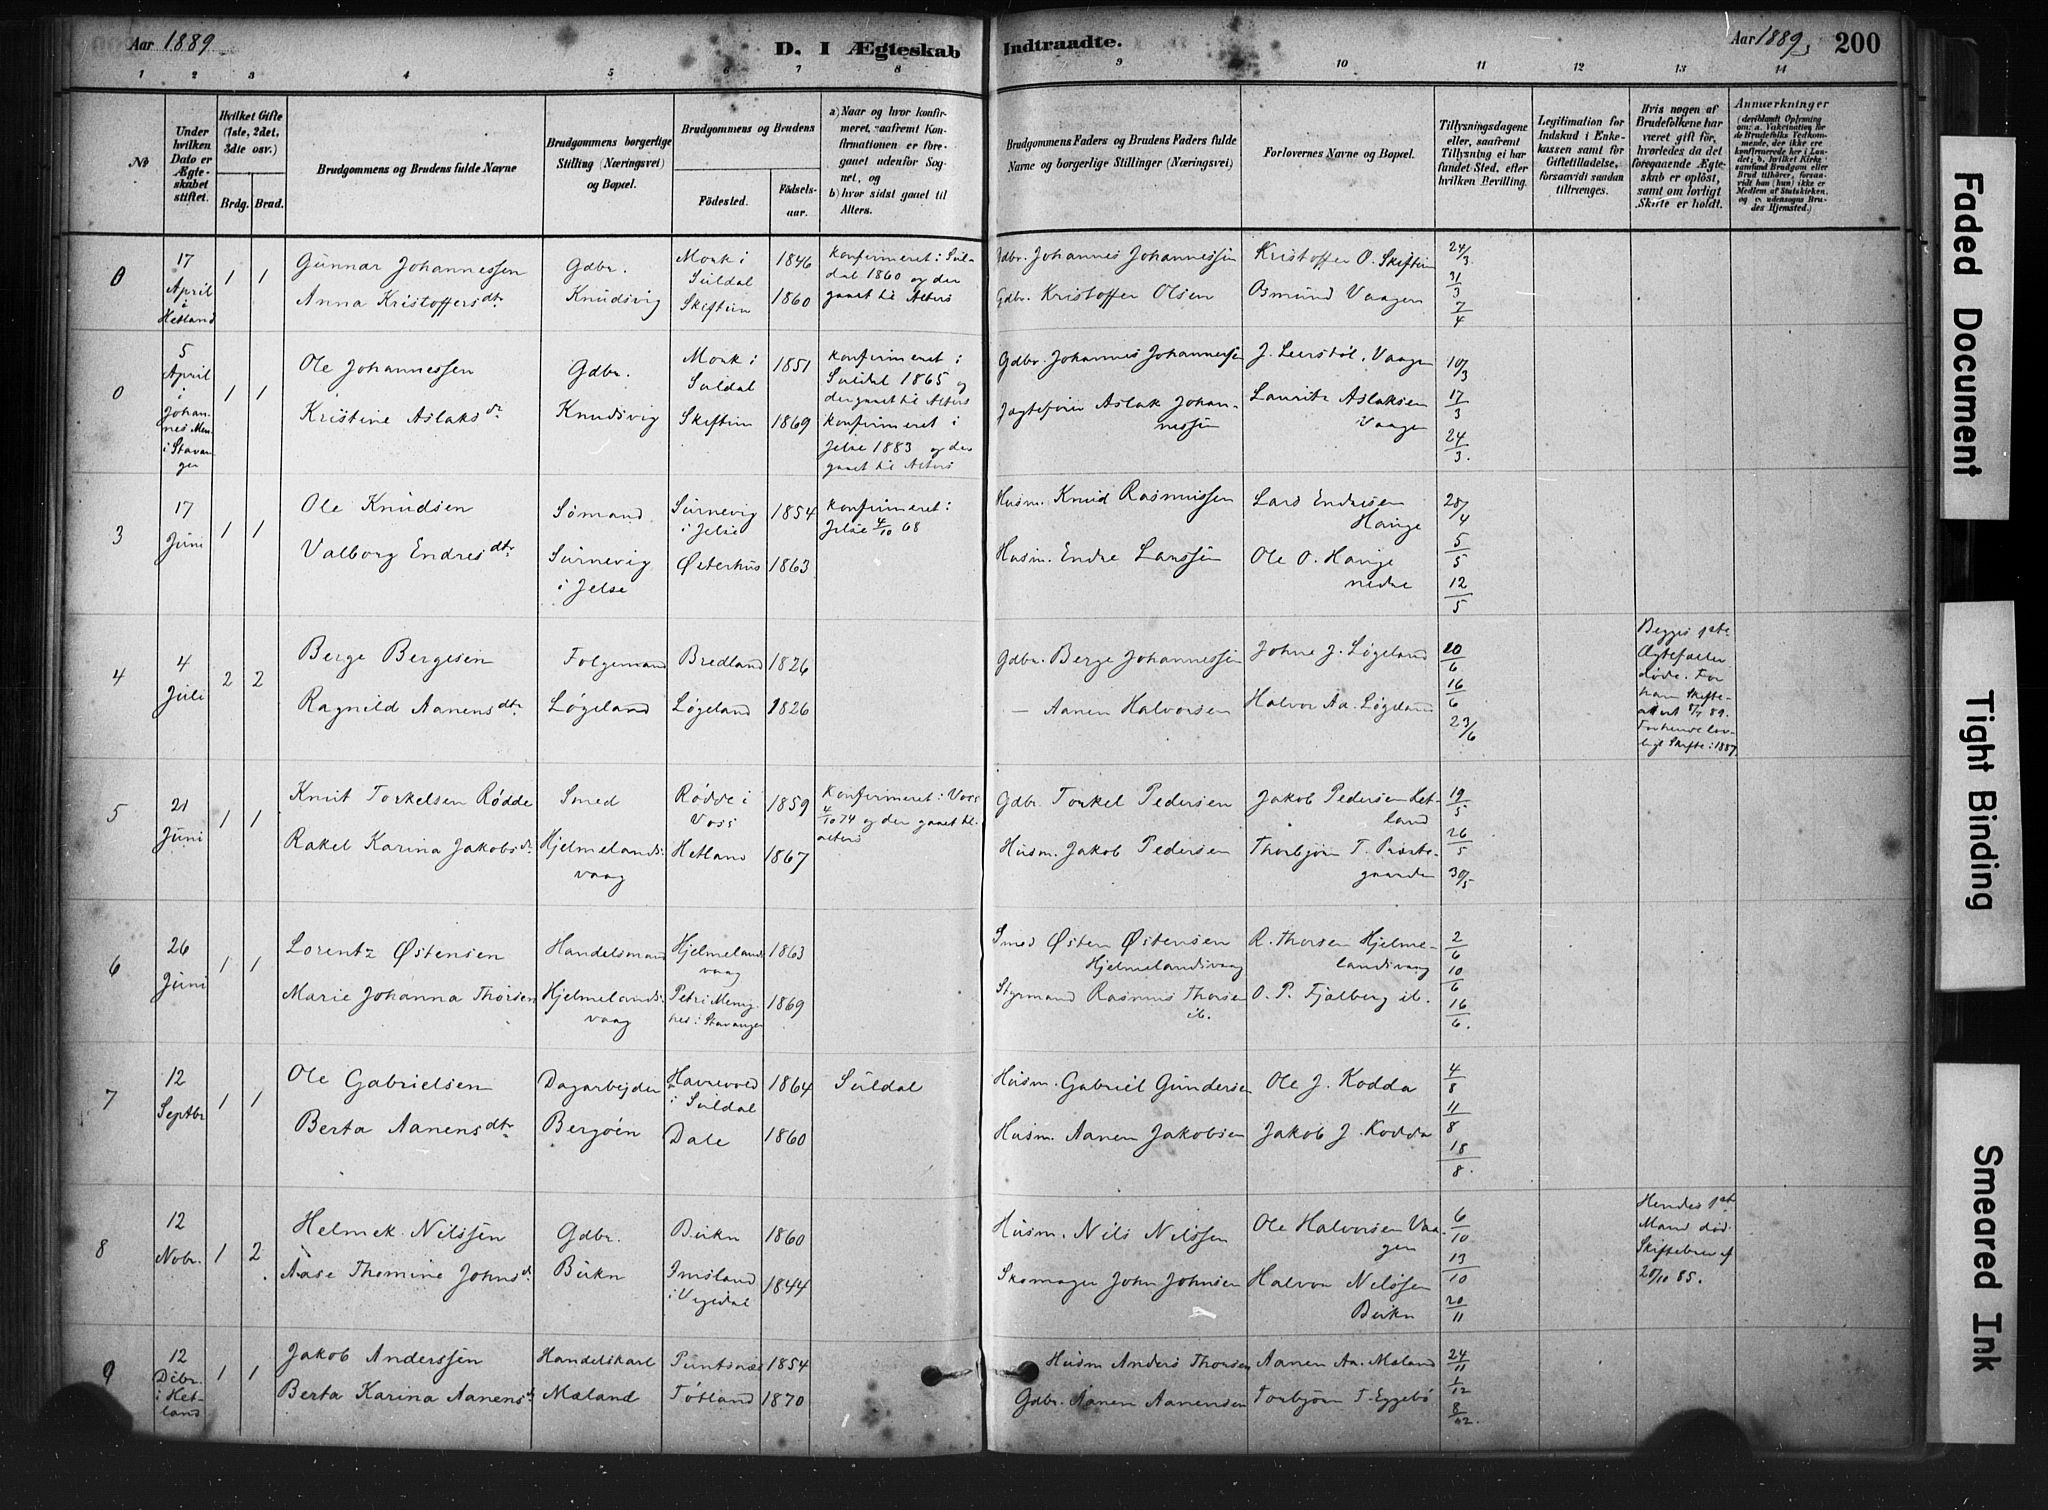 Aar 1889
D. I Ægteskab
Indtraadte.
Aar 1889
200
1 2 3 4 5 6 7 8
9 10 11 12 13 14
No
Under hvilken Dato er Ægteskabet stiftet.
Hvilket Gifte (1ste, 2det, 3dte osv.)
Brdg. Brud.
Brudgommens og Brudens fulde Navne
Brudgommens borgerlige Stilling (Næringsvei) og Bopæl.
Brudgommens og Brudens
Födested.
Födselsaar.
a) Naar og hvor konfirmeret, saafremt Konfirmationen er foregaaet udenfor Sognet, og
b) hvor sidst gaaet til Alters.
Brudgommens Faders og Brudens Faders fulde Navne og borgerlige Stillinger (Næringsvei)
Forlovernes Navne og Bopæl.
Tillysningsdagene eller, saafremt Tillysning ei har fundet Sted, efter hvilken Bevilling.
Legitimation for Indskud i Enkekassen samt for Giftetilladelse, forsaavidt saadan tiltrenges.
Hvis nogen af Brudefolkene har været gift för, hvorledes da det foregaaende Ægteskab er oplöst, samt om lovligt Skifte er holdt.
Anmærkninger
(deriblandt Oplysning om: a. Vakcination for de Brudefolks Vedkommende, der ikke ere konfirmerede her i Landet; b. hvilket Kirkesamfund Brudgom eller Brud tilhörer, forsaavidt han (hun) ikke er Medlem af Statskirken, og c. udensogns Brudes Hjemsted.)
0
17 April i Hetland
1 1
Gunnar Johannessen
Anna Kristoffersdtr
Gdbr.
Knudsvig
Mork i Suldal 1846
Skiftun 1860
Konfirmeret i Suldal 1860 og der gaaet til Alters
Gdbr. Johannes Johannessen
Gdbr. Kristoffer Olsen
Kristoffer O. Skiftun
Osmund Vaagen
24/3
31/3
7/4
0
5 April i Johannes Men. i Stavanger
1 1
Ole Johannessen
Kristine Aslaksdtr
Gdbr.
Knudsvig
Mork i Suldal 1851
Skiftun 1869
Konfirmeret i Suldal 1865 og der gaaet til Alters
Konfirmeret i Jelse 1883 og der gaaet til Alters
Gdbr. Johannes Johannessen
Jagtefører Aslak Johannessen
Vaagen
Lauritz Aslaksen Vaagen
10/3
17/3
24/3.
3
17 Juni
1 1
Ole Knudsen
Valborg Endresdtr
Sømand
Surnevig i Jelse
Surnevig i Jelse 1854
Østerhus 1863
Konfirmeret i Jelse 4/10 68
Husm. Knud Rasmussen
Husm. Endre Larssen
Lars Endresen Hauge
Ole O. Hauge nedre
28/4
5/5
12/5
4
4 Juli
2 2
Berge Bergesen
Ragnild Aanensdtr
Folgemand
Løgeland
Bredland 1826
Løgeland 1826
Gdbr. Berge Johannessen
— Aanen Halvorsen
Johne J. Løgeland
Halvor Aa. Løgeland
20/6
16/6
23/6
Begges 1ste Ægtefæller døde. For ham Skifteattest 5/7 89. For hende lovligt Skifte i 1887.
5
21 Juni
1 1
Knut Torkelsen Rødde
Rakel Karina Jakobsd.
Smed
Hjelmelandsvaag
Rødde i Voss 1859
Hetland 1867
Konfirmeret i Voss 4/10 74 og der gaaet til alters
Gdbr. Torkel Pedersen
Husm. Jakob Pedersen
Jakob Pedersen Hetland
Thorbjørn T. Præstegaarden
19/5
26/5
30/5
6
26 Juni
1 1
Lorentz Østensen
Marie Johanna Thorsen
Handelsmand
Hjelmelandsvaag
Hjelmelandsvaag 1863
Petri Menighed i Stavanger 1869
Smed Østen Østensen Hjelmelandsvaag
Styrmand Rasmus Thorsen ib.
R. Thorsen Hjelmelandsvaag
O. P. Fjælberg ib.
2/6
10/6
16/6.
7
12 Septbr
1 1
Ole Gabrielsen
Berta Aanensdtr
Dagarbejder
Bergøen
Havrevold i Suldal 1864
Dale 1860
Suldal
Husm. Gabriel Gundersen
Husm. Aanen Jakobsen
Ole J. Kodda
Jakob J. Kodda
4/8
11/8
18/8.
8
12 Nobr.
1 2
Helmek Nilssen
Aase Thomine Johnsd.
Gdbr.
Birkn
Birkn 1860
Imsland i Vigedal 1844
Husm. Nils Nilssen
Skomager John Johnsen
Ole Halvorsen Vaagen
Halvor Nilssen Birkn
6/10
13/10
20/11
Hendes 1ste Mand død. Skiftebrev af 20/10 85.
9
12 Dcbr. i Hetland
1 1
Jakob Anderssen
Berta Karina Aanensd.
Handelskarl
Mæland
Puntsnæs 1854
Tøtland 1870
Husm Anders Thorsen
Gdbr. Aanen Aanensen
Aanen Aa. Mæland
Torbjørn T. Eggebø
24/11
1/12
8/12.
Faded Document
Tight Binding
Smeared Ink